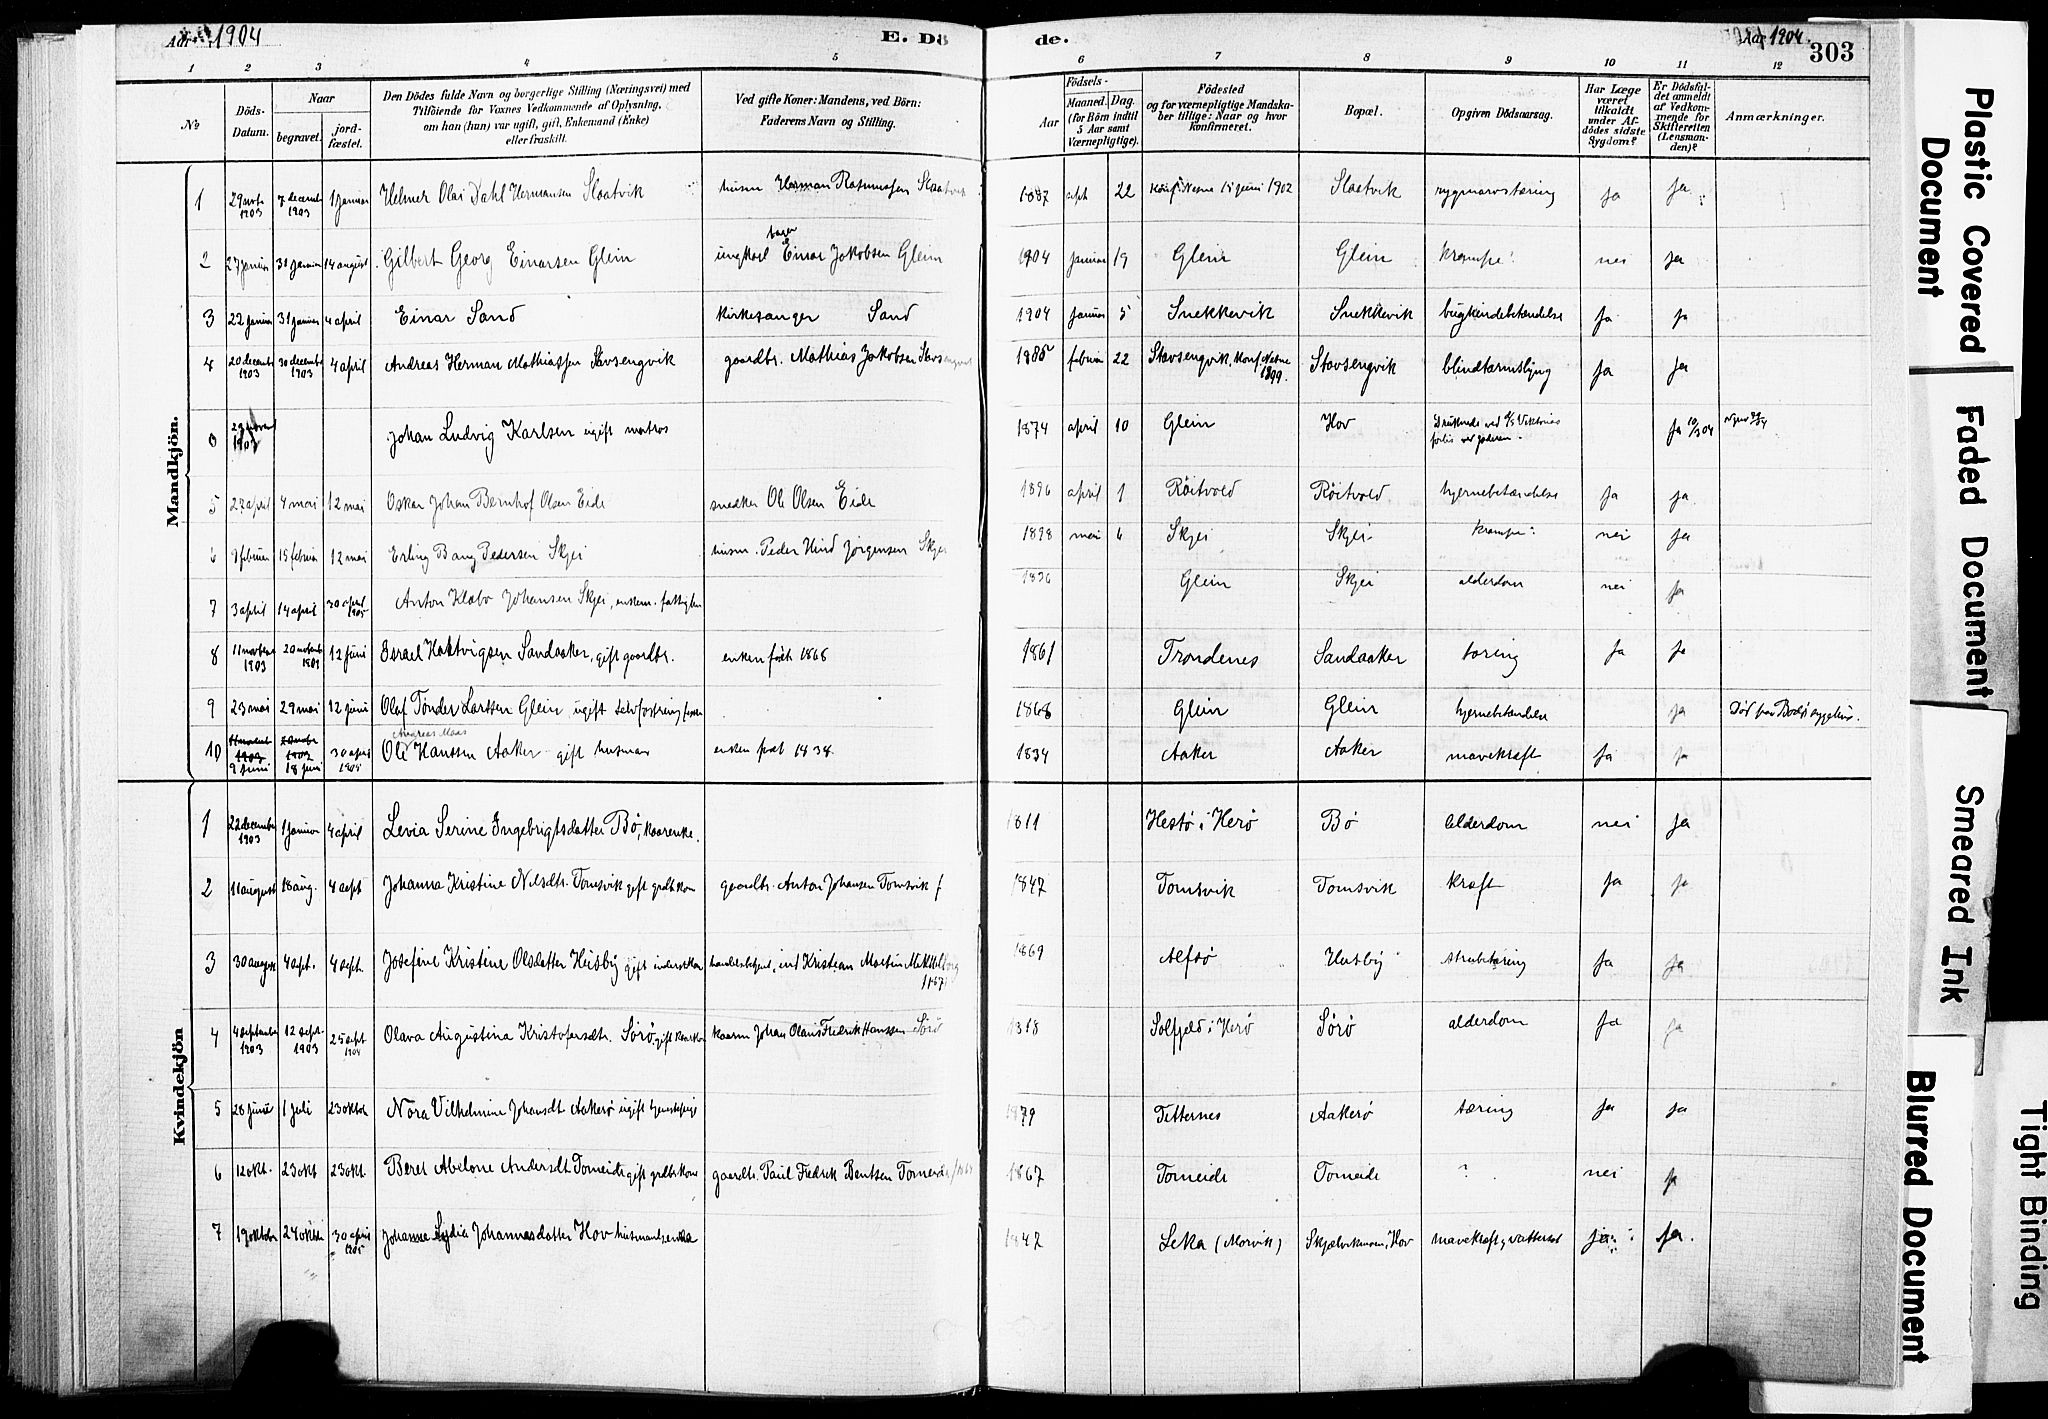 Aar 1904
E. Döde.
Aar 1904.
303
1 2 3 4 5 6 7 8 9 10 11 12
No
Döds-Datum.
Naar
begravet.
jordfæstet.
Den Dödes fulde Navn og borgerlige Stilling (Næringsvei) med
Tilföiende for Voxnes Vedkommende af Oplysning,
om han (hun) var ugift, gift, Enkemand (Enke)
eller fraskilt.
Ved gifte Koner: Mandens, ved Börn:
Faderens Navn og Stilling.
Födsels-
Aar
Maaned. Dag.
(for Börn indtil
5 Aar samt
Værnepligtige).
Födested
og for værnepligtige Mandska-
ber tillige: Naar og hvor
konfirmeret.
Bopæl.
Opgiven Dödsaarsag.
Har Læge
været
tilkaldt
under Af-
dödes sidste
Sygdom?
Er Dödsfal-
det anmeldt
af Vedkom-
mende for
Skifteretten
(Lensman-
den)?
Anmærkninger.
Mandkjön.
1 29 novb. 1903 7 decemb 1903 1 januar Helmer Olai Dahl Hermansen Slaatvik husm Herman Rasmussen Slaatvik 1887 sept 22 Konf. i Nesne 15 juni 1902 Slaatvik rygmarvstæring ja ja
2 27 januar 31 januar 14 august Gilbert Georg Einarsen Glein ungkarl bager Einar Jakobsen Glein 1904 januar 19 Glein Glein krampe nei ja
3 22 januar 31 januar 4 april Einar Sand kirkesanger Sand 1904 januar 5 Snekkevik Snekkevik bughindebetændelse ja ja
4 20 decemb 1903 30 decemb 1903 4 april Andreas Herman Mathiassen Stavsengvik gaardbr. Mathias Jakobsen Stavsengvik 1885 februar 22 Stavsengvik, Konf Nesne 1899. Stavsengvik blindtarmsbetændelse ja ja
0 Johan Ludvig Karlsen ugift matros 1874 april 10 Glein Hov Druknede ved ja 10/3 04
5 27 april 4 mai 12 mai Oskar Johan Bernhof Olsen Eide snedker Ole Olsen Eide 1896 april 1 Røitvold Røitvold hjernebetændelse ja ja
6 9 februar 15 februar 12 mai Erling Bang Pedersen Skjei husm. Peder Hind Jørgensen Skjei 1898 mai 6 Skjei Skjei krampe nei ja
7 3 april 14 april 30 april 1905 Anton Klæbo Johansen Skjei, enkem. fattiglem 1826 Glein Skjei alderdom nei ja
8 11 novbr 1903 20 novemb 1903 12 juni Israel Haktvigsen Sandaaker, gift gaardbr. enken født 1868 1861 Trondenes Sandaaker tæring ja ja
9 23 mai 29 mai 12 juni Olaf Tønder Larssen Glein, ugift selvforsørgende 1868 Glein Glein hjernebetændelse ja Død paa Bodø sygehus.
10 9 juni 18 juni 30 april 1905 Ole Andreas Maas Hanssen Aaker gift husman enken født 1838. 1834 Aaker Aaker mavekræft ja ja
Kvindekjön
1 22 decembr 1903 1 januar 4 april Levia Serine Ingebrigtsdatter Bø, kaarenke. 1811 Hestø i Herø Bø Alderdom nei ja
2 11 august 18 aug. 4 sept Johanna Kristine Nilsdtr. Tomsvik gift grdbrkone gaardbr. Anton Johansen Tomsvik f 1847 Tomsvik Tomsvik kræft ja ja
3 30 august 4 sept. 4 sept. Josefine Kristine Olsdatter Heisbÿ gift inderstkone handelsbetjent, ind Kristian Martin Mikkelborg f 1867 1869 Alfsø Husbÿ strubetæring ja ja
4 4 septembr 1903 12 sept. 1903 25 sept 1904 Olava Augustina Kristofersdtr. Sørø, gift kaarkone kaarm Johan Olaus Fredrik Hanssen Sørø 1818 Solfjeld i Herø Sørø alderdom ja ja
5 28 juni 1 juli 23 oktob Nora Vilhelmine Johansdt. Aakerø ugift tjenestepige 1879 Titternes Aakerø tæring ja ja
6 12 okt. 23 okt 23 okt. Beret Abelone Andersdt. Torneide gift grdbrkone gaardbr. Paul Fredrik Bentsen Torneide 1867 Torneide Torneide ? nei ja
7 19 oktobr 24 oktbr 30 april 1905 Johanne Lydia Johannesdatter Hov husmandsenke 1847 Leka (Morvik) Skjelvikmoen, Hov mavekræft, vattersot ja ja.
Plastic Covered Document
Faded Document
Smeared Ink
Blurred Document
Tight Binding